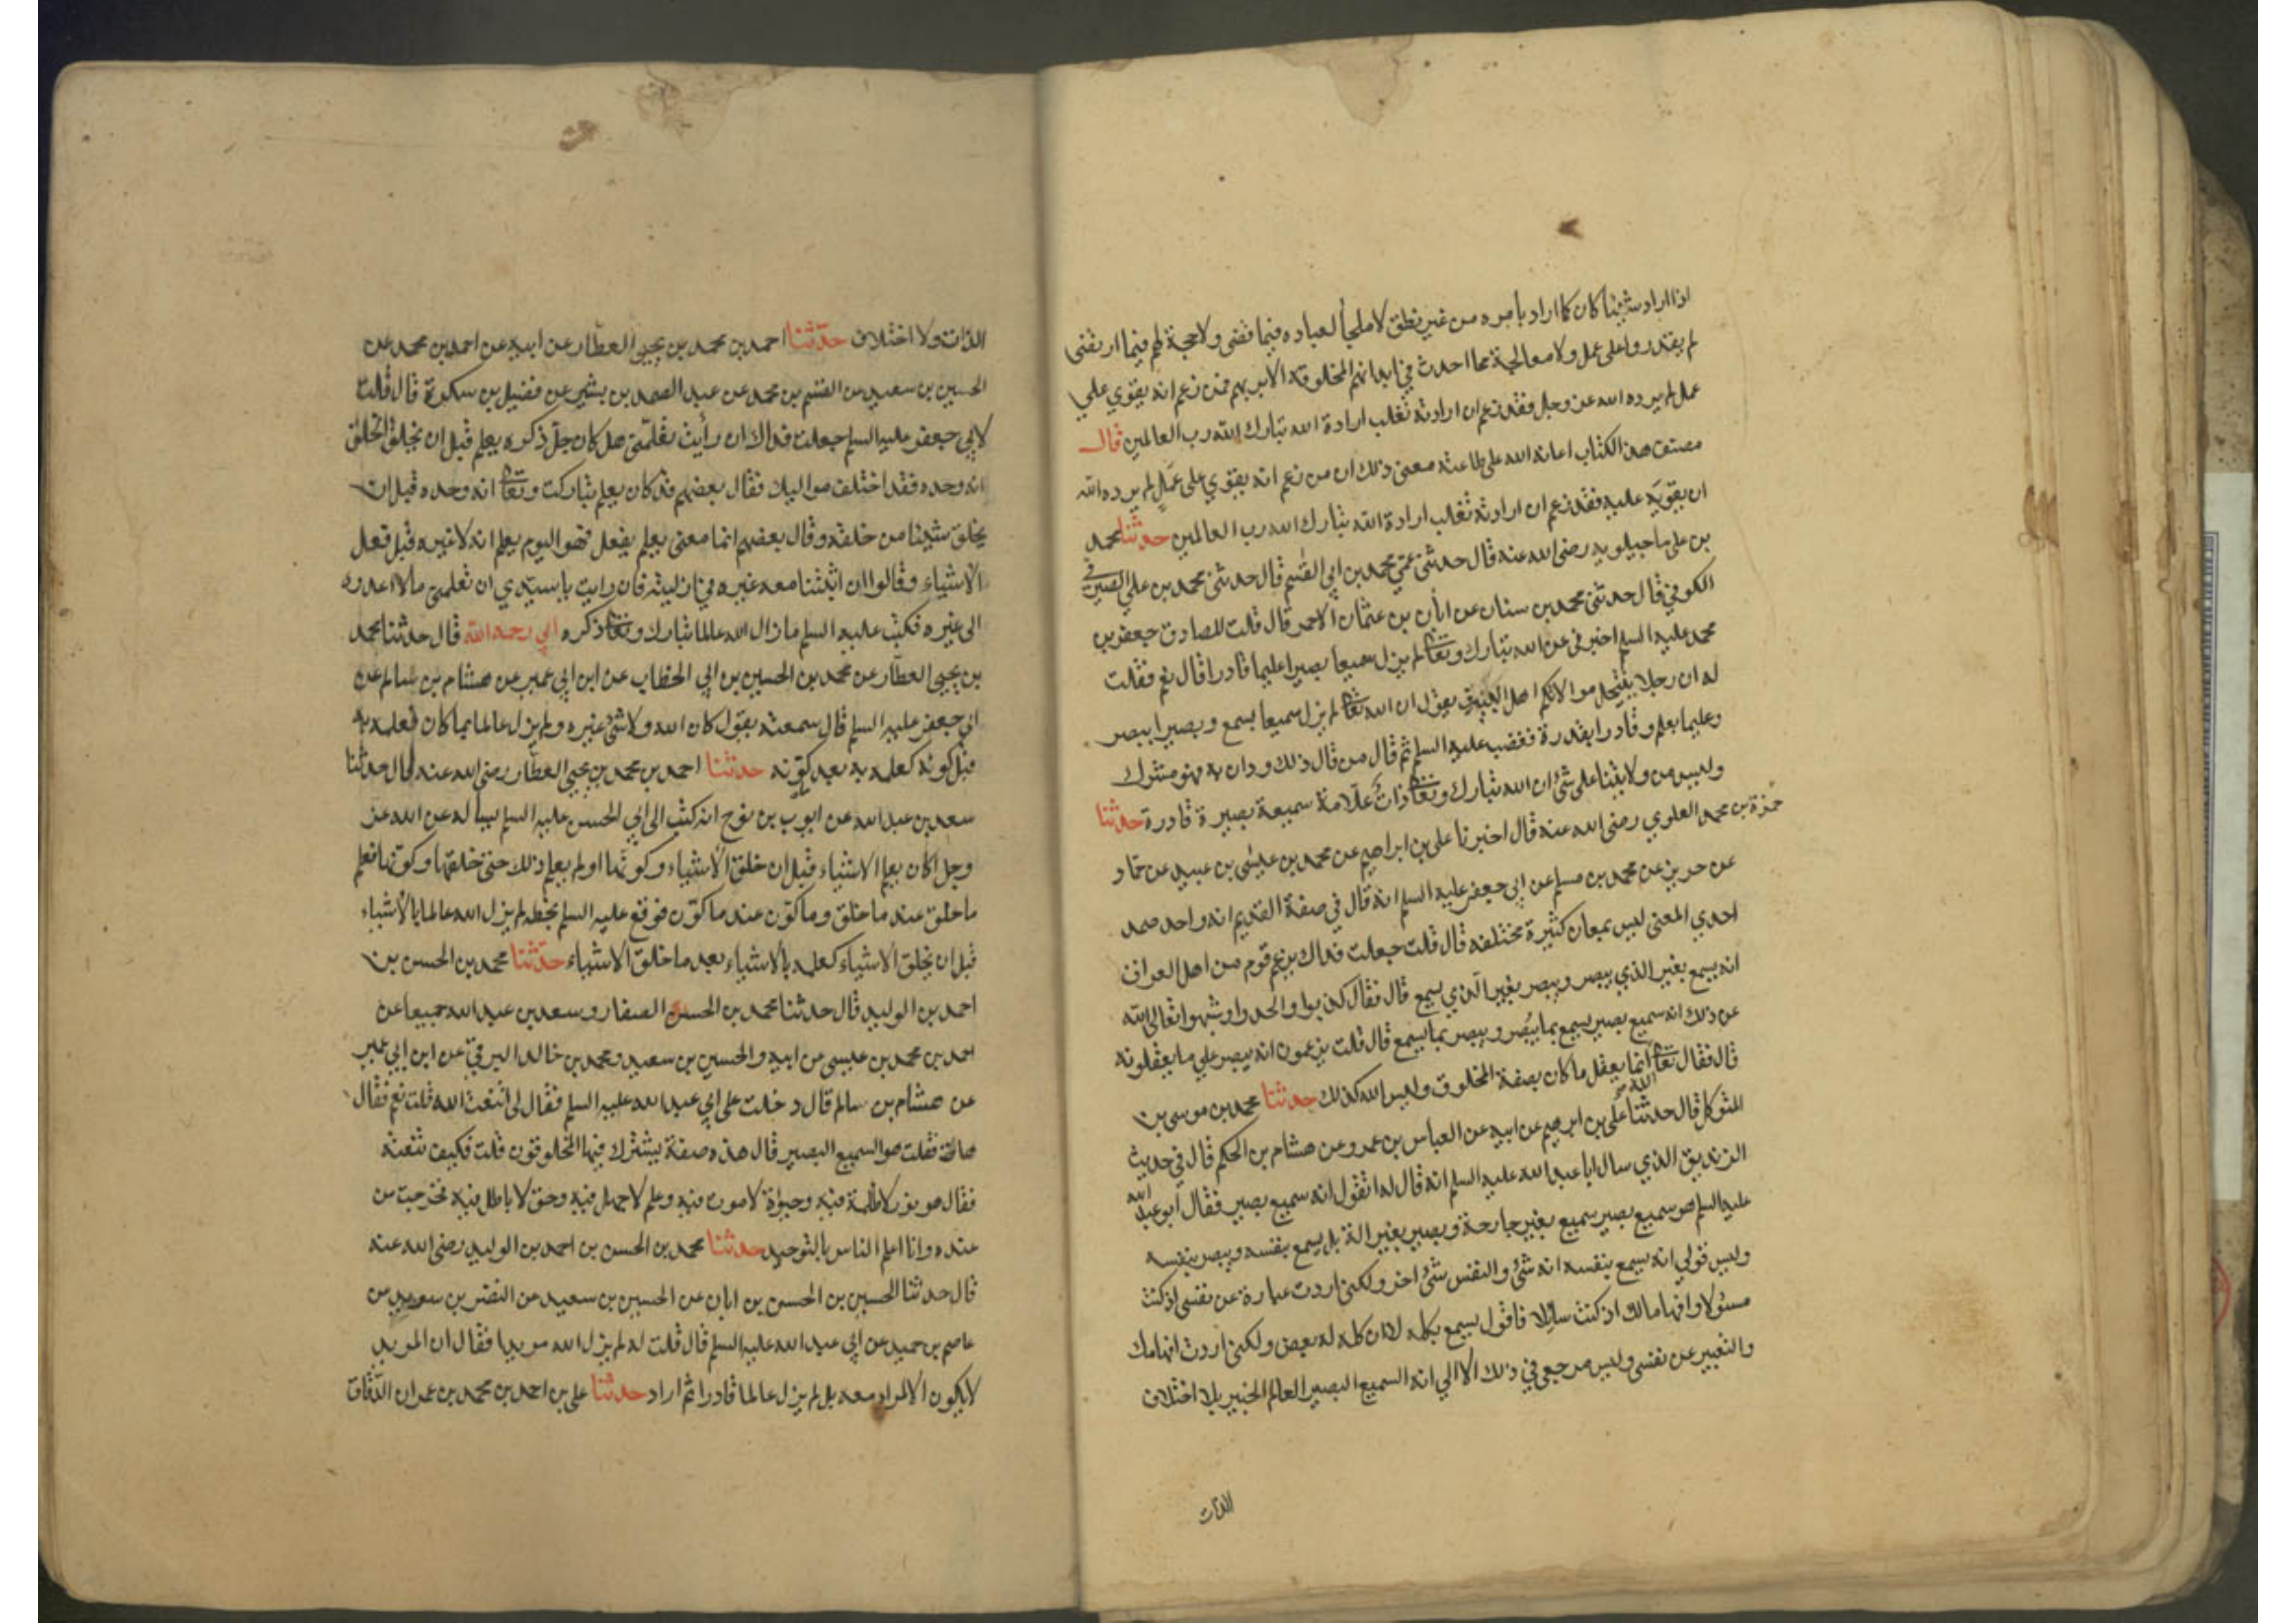 اذا اراد شيئا كان كما اراد بأمره من غير نطق لا ملجأ لعباده فيما قضى ولا حجة لهم فيما ارتضى
لم يقدروا على عمل ولا معالجة مما احدث في ابدانهم المخلوقة الا بربهم فمن زعم انه يقوي علي
عمل لم يرده الله عز وجل فقد زعم ان ارادته تغلب ارادة الله تبارك الله رب العالمين قال
مصنف هذا الكتاب اعانه الله على طاعته معنى ذلك ان من زعم انه يقوي على عمل لم يرده الله
ان يقويه عليه فقد زعم ان ارادته تغلب ارادة الله تبارك الله رب العالمين حدثنا محمد
بن علي ماجيلويه رضي الله عنه قال حدثني عمي محمد بن ابي القسم قال حدثني محمد بن علي الصيرفي
الكوفي قال حدثني محمد بن سنان عن ابان بن عثمان الاحمر قال قلت للصادق جعفر بن
محمد عليه السلم اخبرني عن الله تبارك وتعا لم يزل سميعا بصيرا عليما قادرا قال نعم فقلت
له ان رجلا ينتحل موالاتكم اهل البيت يقول ان الله تعا لم يزل سميعا بسمع وبصيرا ببصر
وعليما بعلم وقادرا بقدرة فغضب عليه السلم ثم قال من قال ذلك ودان به فهو مشرك
وليس من ولايتنا على شئ ان الله تبارك وتعا ذات علامة سميعة بصيرة قادرة حدثنا
حمزة بن محمد العلوي رضي الله عنه قال اخبرنا علي بن ابراهيم عن محمد بن عيسى بن عبيد عن حماد
عن حريز عن محمد بن مسلم عن ابي جعفر عليه السلم انه قال في صفة القديم انه واحد صمد
احدي المعنى ليس بمعان كثيرة مختلفه قال قلت جعلت فداك يزعم قوم من اهل العراق
انه يسمع بغير الذي يبصر ويبصر بغير الذي يسمع قال فقال كذبوا والحدوا وشبهوا تعالى الله
عن ذلك انه سميع بصير يسمع بما يبصر ويبصر بما يسمع قال قلت يزعمون انه بصير علي ما يعقلونه
قال فقال تعا الله انما يعقل ما كان بصفة المخلوق وليس الله كذلك حدثنا محمد بن موسى بن
المتوكل قال حدثنا علي بن ابرهيم عن ابيه عن العباس بن عمرو عن هشام بن الحكم قال في حديث
الزنديق الذي سال ابا عبد الله عليه السلم انه قال له اتقول انه سميع بصير فقال ابو عبد الله
عليه السلم هو سميع بصير سميع بغير جارحة وبصير بغير الة بل يسمع بنفسه ويبصر بنفسه
وليس قولي انه يسمع بنفسه انه شئ والنفس شئ اخر ولكني اردت عبارة عن نفسي اذ كنت
مسئولا وافهاما لك اذ كنت سائلا فاقول يسمع بكله لا ان كله له بعض ولكني اردت افهامك
والتعبير عن نفسي وليس مرجعي في ذلك الا الي انه السميع البصير العالم الخبير بلا اختلاف
الذات
الذات ولا اختلاف حدثنا احمد بن محمد بن يحيى العطار عن ابيه عن احمد بن محمد عن
الحسين بن سعيد عن القسم بن محمد عن عبد الصمد بن بشير عن فضيل بن سكرة قال قلت
لابي جعفر عليه السلم جعلت فداك ان رأيت تعلمني هل كان جل ذكره يعلم قبل ان يخلق الخلق
انه وحده فقد اختلف مواليك فقال بعضهم قد كان يعلم تباركت وتعا انه وحده قبل ان
يخلق شيئا من خلقه وقال بعضهم انما معنى يعلم يفعل فهو اليوم يعلم انه لا غيره قبل فعل
الاشياء وقالوا ان اثبتنا معه غيره في ازليته فان رايت يا سيدي ان تعلمني ما لا اعدوه
الى غيره فكتب عليه السلم ما زال الله عالما تبارك وتعا ذكره ابي رحمه الله قال حدثنا محمد
بن يحيى العطار عن محمد بن الحسين بن ابي الخطاب عن ابن ابي عمير عن هشام بن سالم عن
ابي جعفر عليه السلم قال سمعته يقول كان الله ولا شئ غيره ولم يزل عالما بما كان فعلمه به
قبل كونه كعلمه به بعد كونه حدثنا احمد بن محمد بن يحيى العطار رضي الله عنه قال حدثنا
سعد بن عبد الله عن ايوب بن نوح انه كتب الى ابي الحسن عليه السلم يساله عن الله عز
وجل اكان يعلم الاشياء قبل ان خلق الاشياء وكونها او لم يعلم ذلك حتى خلقها وكونها فعلم
ما خلق عند ما خلق وما كون عند ما كون فوقع عليه السلم بخطه لم يزل الله عالما بالاشياء
قبل ان يخلق الاشياء كعلمه بالاشياء بعد ما خلق الاشياء حدثنا محمد بن الحسن بن
احمد بن الوليد قال حدثنا محمد بن الحسن الصفار وسعد بن عبد الله جميعا عن
احمد بن محمد بن عيسى عن ابيه والحسين بن سعيد ومحمد بن خالد البرقي عن ابن ابي عمير
عن هشام بن سالم قال دخلت على ابي عبد الله عليه السلم فقال لي اتنعت الله قلت نعم فقال
هات فقلت هو السميع البصير قال هذه صفة يشترك فيها المخلوقون قلت فكيف تنعته
فقال هو نور لا ظلمة فيه وحيوة لا موت فيه وعلم لا جهل فيه وحق لا باطل فيه فخرجت من
عنده وانا اعلم الناس بالتوحيد حدثنا محمد بن الحسن بن احمد بن الوليد رضي الله عنه
قال حدثنا الحسين بن الحسن بن ابان عن الحسين بن سعيد عن النضر بن سويد عن
عاصم بن حميد عن ابي عبد الله عليه السلم قال قلت له لم يزل الله مريدا فقال ان المريد
لا يكون الا لمراد معه بل لم يزل عالما قادرا ثم اراد حدثنا علي بن احمد بن محمد بن عمران الدقاق